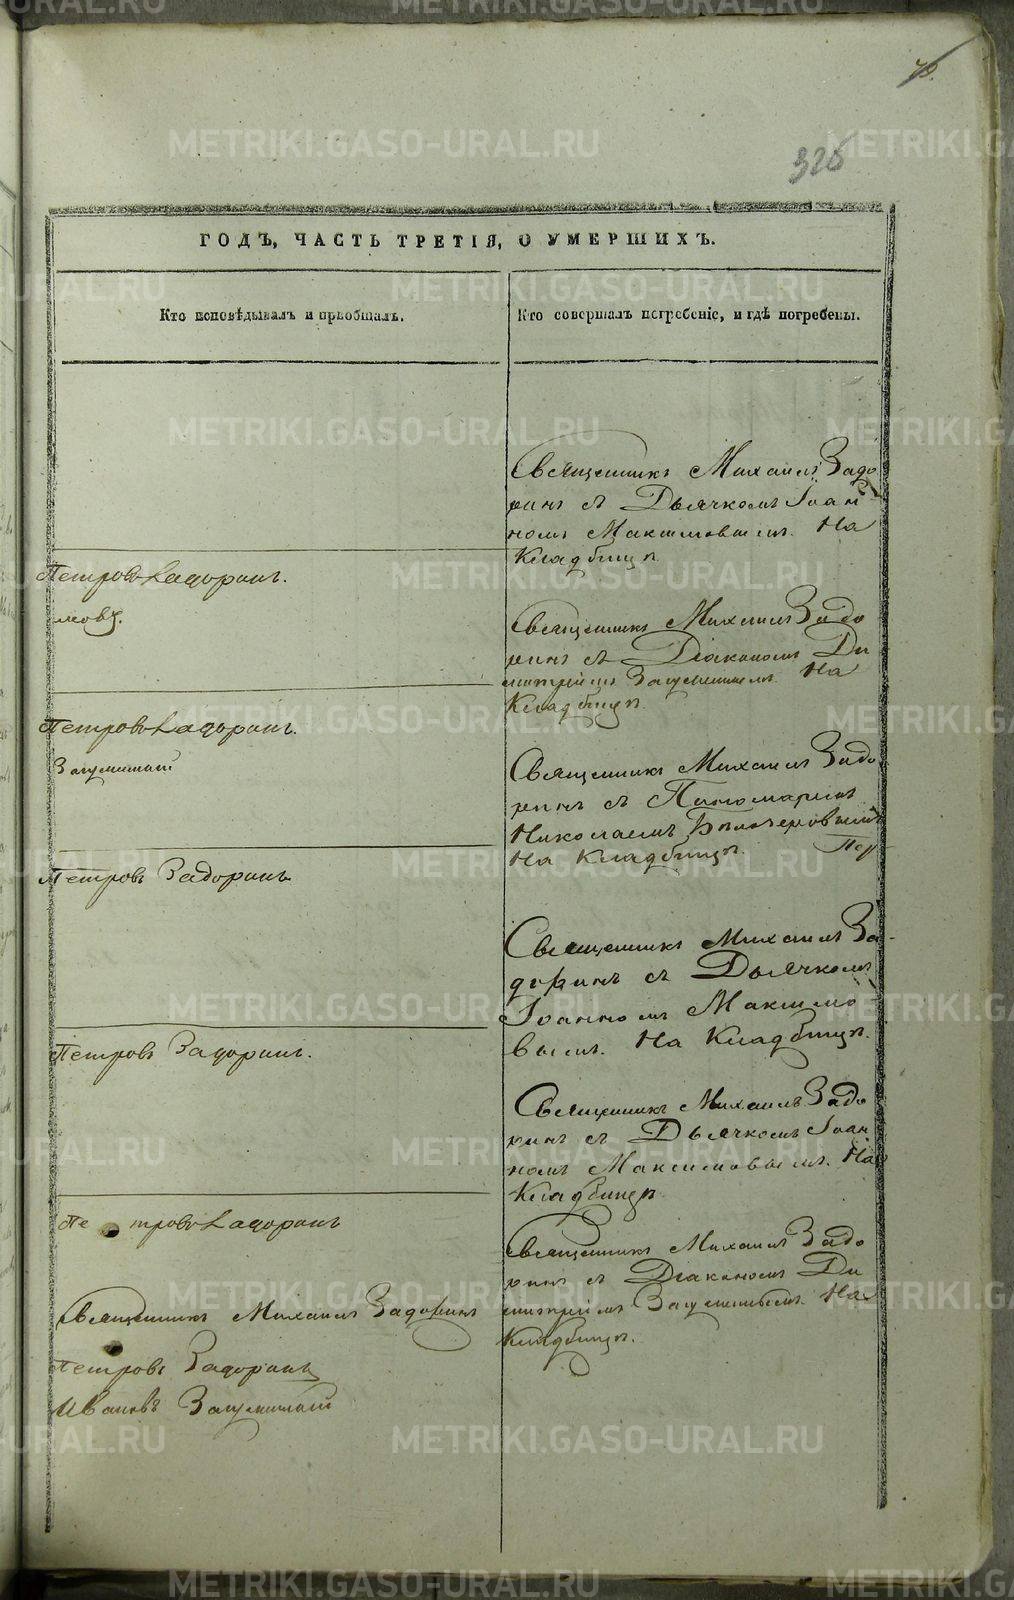 326
ГОДЪ, ЧАСТЬ ТРЕТІЯ, О УМЕРШИХЪ.
Кто исповѣдывалъ и пріобщалъ.
Кто совершалъ погребеніе, и гдѣ погребены.
Священникъ Михаилъ Задо
ринъ съ Дьячкомъ Іоан
номъ Максимовымъ. На
Кладбищѣ
Петровъ Задоринъ.
мовъ.
Священникъ Михаилъ Задо
ринъ съ Діакономъ Ди
митріемъ На
Кладбищѣ.
Петровъ Задоринъ.
Священникъ Михаилъ Задо
ринъ съ Пономаремъ
Николаемъ
На Кладбищѣ.
Петровъ Задоринъ
Священникъ Михаилъ За-
доринъ съ Дьячкомъ
Іоанномъ Максимо
вымъ. На Кладбищѣ.
Петровъ Задоринъ.
Священникъ Михаилъ Задо
ринъ съ Дьячкомъ Іоан
номъ Максимовымъ. На
Кладбищѣ
Петровъ Задоринъ
Священникъ Михаилъ Задо
ринъ съ Діакономъ Ди
митріемъ На
Кладбищѣ.
Священникъ Михаилъ Задоринъ
Петровъ Задоринъ
Ивановъ
METRIKI.GASO-URAL.RU